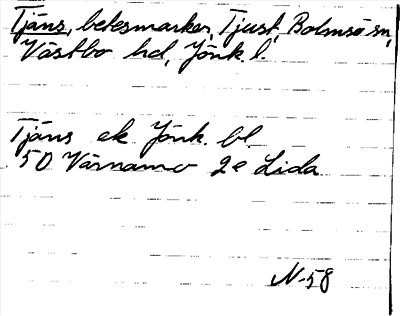 Tjäns, betesmarker, Tjust, Bolmsö sn,
Västbo hd, Jönk. l.
Tjäns ek Jönk. bl.
50 Värnamo 2e Lida
N-58